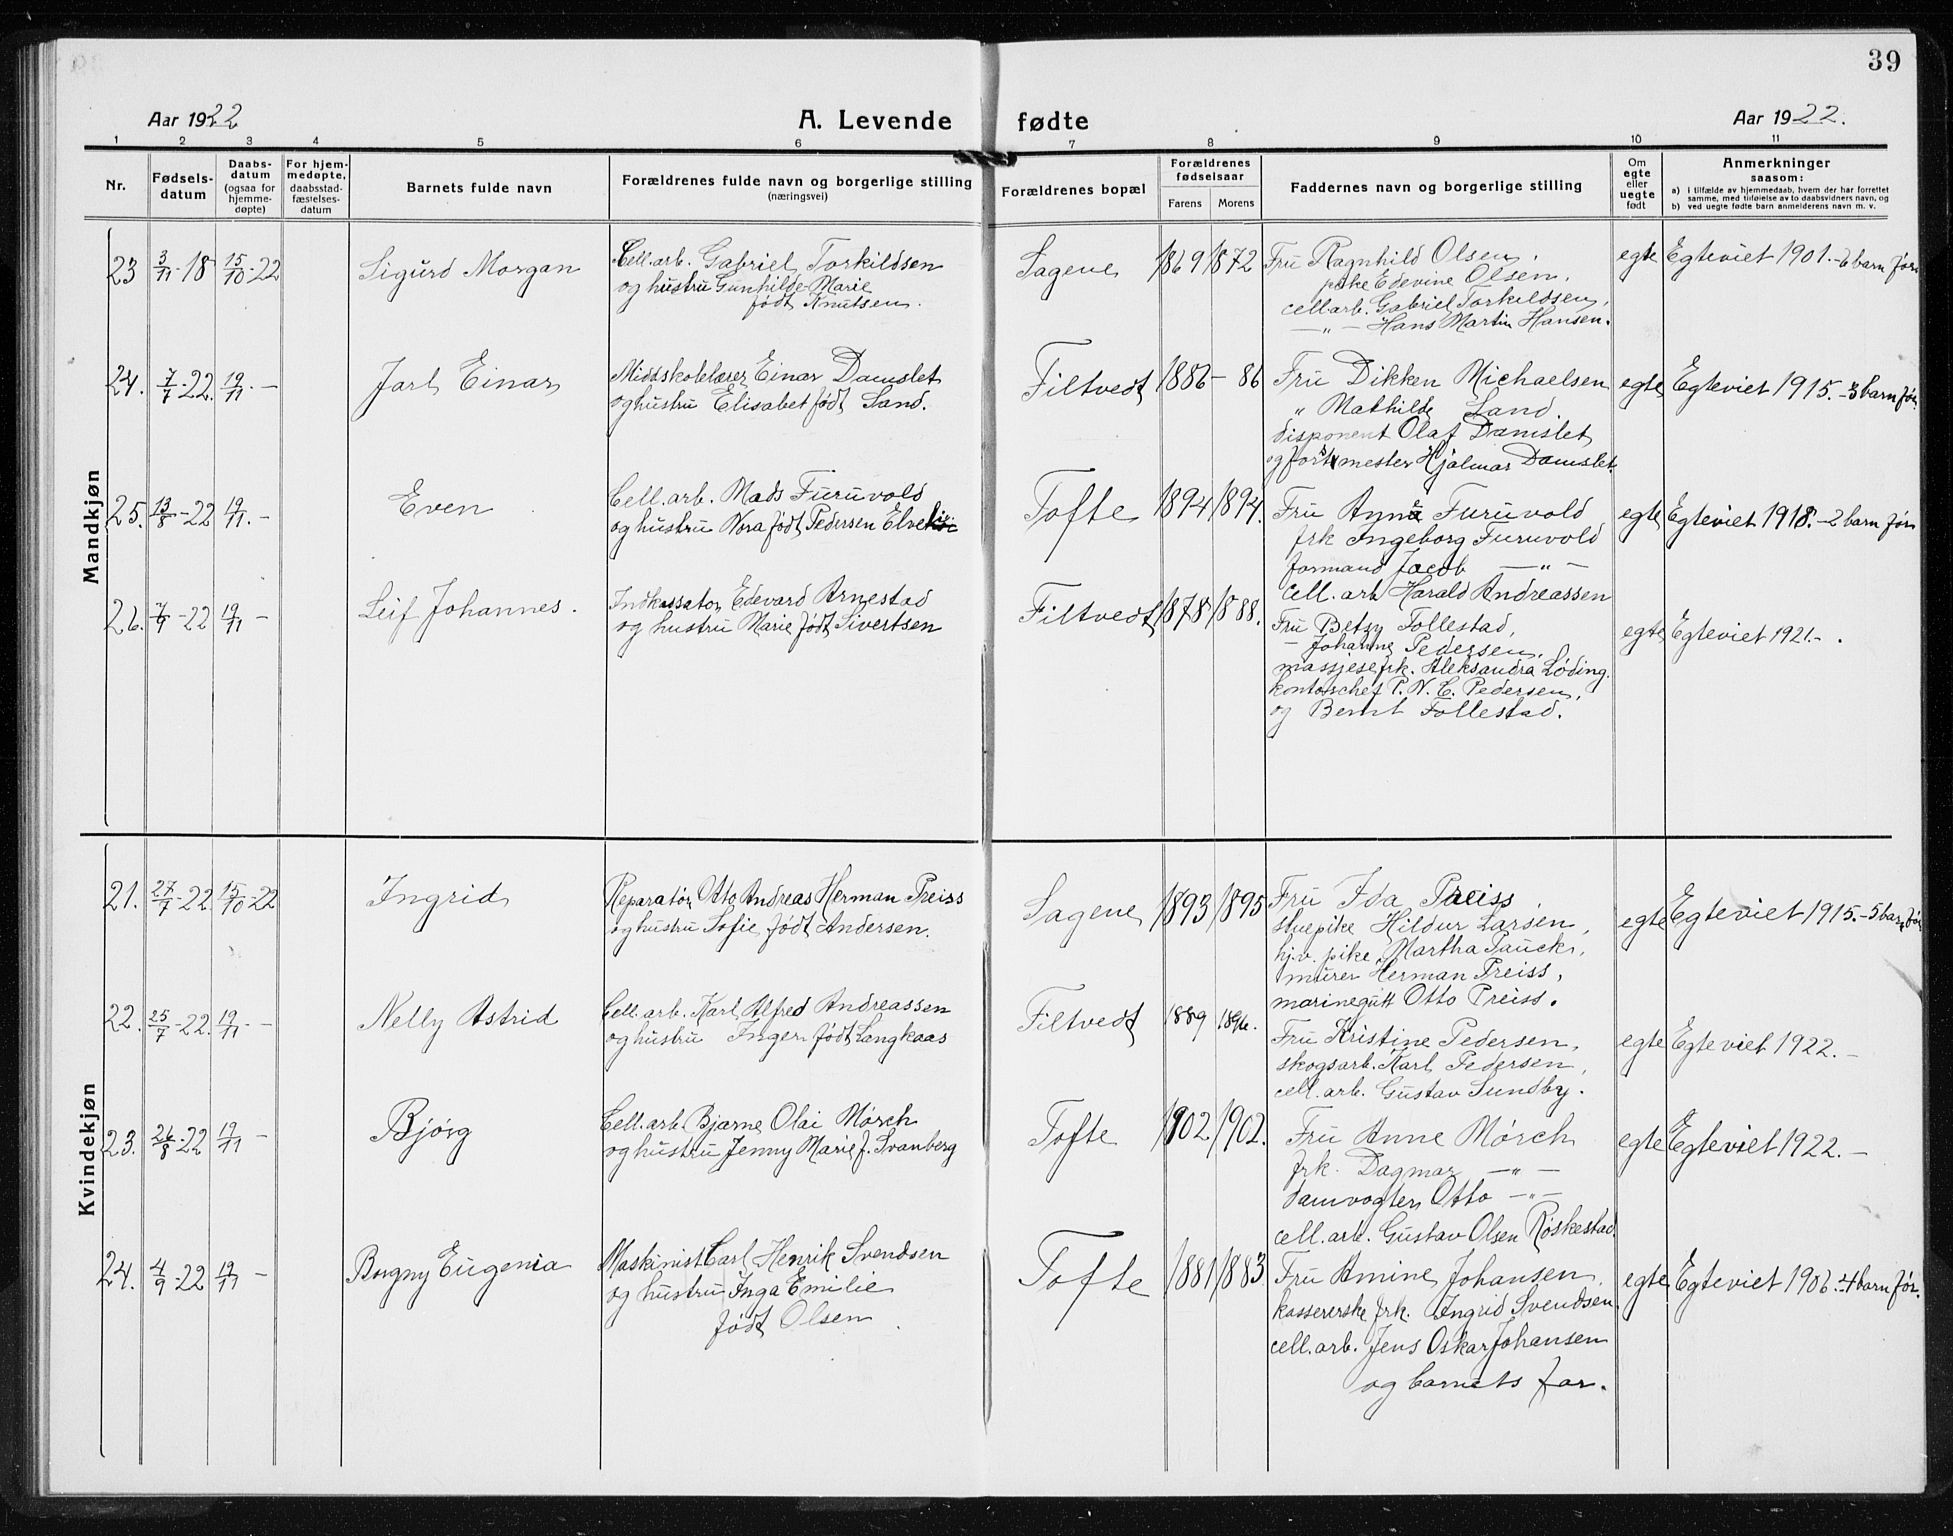 39
Aar 1922
A. Levende fødte
Aar 1922.
1 2 3 4 5 6 7 8 9 10 11
Nr.
Fødsels-
datum
Daabs-
datum
(ogsaa for
hjemme-
døpte)
For hjem-
medøpte,
daabsstad-
fæstelses-
datum
Barnets fulde navn
Forældrenes fulde navn og borgerlige stilling
(næringsvei)
Forældrenes bopæl
Forældrenes
fødselsaar
Farens Morens
Faddernes navn og borgerlige stilling
Om
egte
eller
uegte
født
Anmerkninger
saasom:
a) i tilfælde av hjemmedaab, hvem der har forrettet
samme, med tilføielse av to daabsvidners navn, og
b) ved uegte fødte barn anmelderens navn m. v.
Mandkjøn
23 3/11-18 15/10-22 Sigurd Morgan
Cell.arb. Gabriel Torkildsen
og hustru Gunhilde Marie
født Knutsen.
Sagene 1869 1872
Fru Ragnhild Olsen.
pike Edevine Olsen.
cell.arb. Gabriel Torkildsen.
—"— Hans Martin Hansen.
egte Egteviet 1901.-6 barn før.
24. 7/7-22. 19/11.— Jarl Einar
Middskolelærer Einar Damslet
og hustru Elisabet født Sand.
Filtvedt 1886 - 86
Fru Dikken Michaelsen
" Mathilde Sand.
disponent Olaf Damslet
og forstmester Hjalmar Damslet.
egte Egteviet 1915.-3 barn før.
25. 13/8-22 19/11.- Even
Cell.arb. Mads Furuvold
og hustru Nora født Pedersen
Tofte 1894 1894.
Fru Anna Furuvold
frk Ingeborg Furuvold
formand Jacob —"—
cell. arb Harald Andreassen
egte Egteviet 1918.-2 barn før
26. 7/9-22 19/11- Leif Johannes.
Indkassator Edevard Arnestad
og hustru Marie født Sivertsen
Filtvedt 1878 1888.
Fru Betzy Follestad,
- Johanne Pedersen,
massjesefrk. Aleksandra Løding.
kontorschef P. N. C. Pedersen,
og Bernt Follestad.
egte Egteviet 1921.-.
Kvindekjøn
21. 27/7-22 15/10-22 Ingrid
Reparatør Otto Andreas Herman Preiss
og hustru Sofie født Andersen.
Sagene 1893 1895
Fru Ida Preiss
stuepike Hildur Larsen,
hj.v. pike Martha Pauck,
murer Herman Preiss,
marinegutt Otto Preiss.
egte Egteviet 1915.-5 barn før
22. 25/7-22. 19/11- Nelly Astrid
Cell. arb. Karl Alfred Andreassen
og hustru Inger født Langkaas
Filtvedt 1889 1896.
Fru Kristine Pedersen,
skogsarb. Karl Pedersen,
cell. arb. Gustav Sundby.
egte Egteviet 1922.-
23. 26/8-22 19/11- Bjørg
Cell. arb. Bjarne Olai Mørch
og hustru Jenny Marie f. Svanberg
Tofte 1902 1902.
Fru Anne Mørch
frk. Dagmar —"—
damvogter Otto —"—
cell. arb. Gustav Olsen Røskestad.
egte Egteviet 1922.-
24. 4/9-22 19/11 - Borgny Eugenia
Maskinist Carl Henrik Svendsen
og hustru Inga Emilie
født Olsen
Tofte 1881 1883.
Fru Amine Johansen.
kassererske frk. Ingrid Svendsen.
cell.arb. Jens Oskar Johansen
og barnets far.
egte Egteviet 1906.-4 barn før.